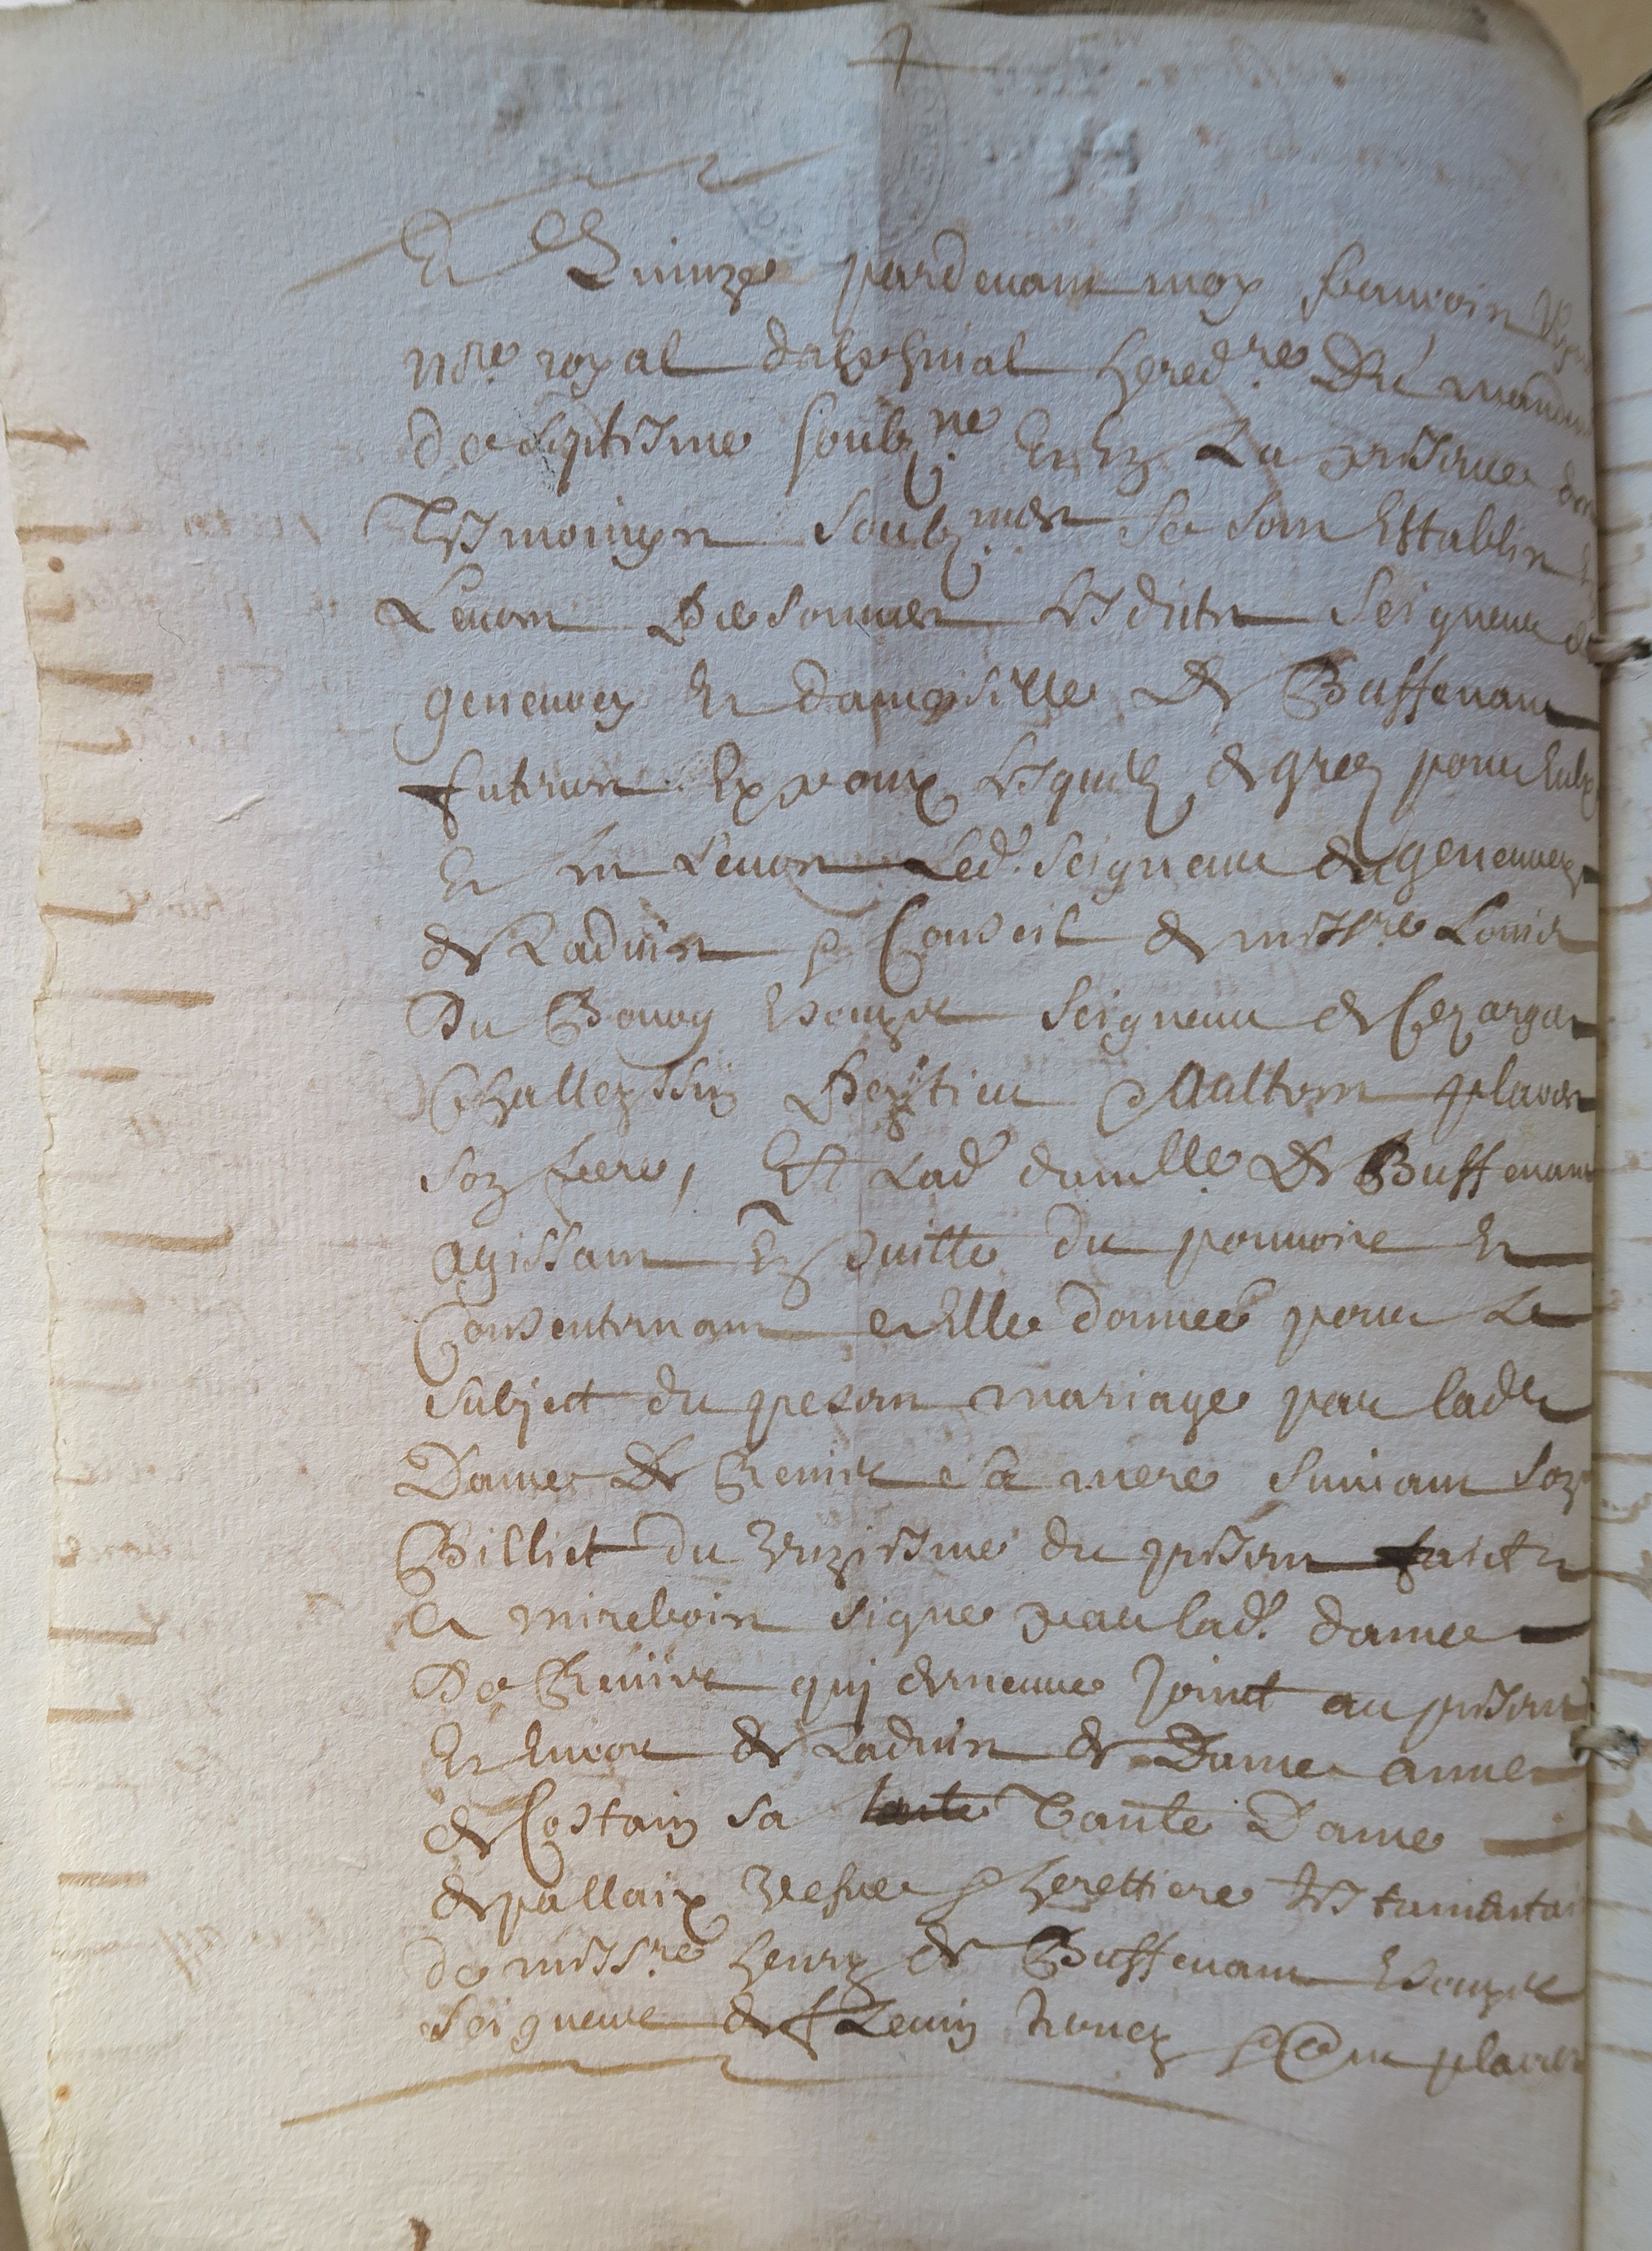 Et Quinze pardevant moy francois
nore. royal dalphinal hered.re Du mande
de septisme soubz.ne Et En La presance de
Tesmoingn soubz.nes se sont Establis
Leurs Personnes Lesdicts Seigneur de
genevey Et damoiselle De Buffevant
futeurs Expoux Lesquels de gré pour Eulx
Et les Leurs Led. Seigneur de genevey
de Ladvis & Conseil de messre Louis
Du Bourg Escuyer Seigneur de Cezarges
Challeyssin & Aultres places
son frere, Et Lad. damlle. De Buffevant
agissant En suitte du pouvoir Et
Consentemant a Elle donnee pour Le
subject du presant mariage par lade
Dame De sa mere suivant son
Billiet du unziesme du presant faict
a signe par lad. dame
De qui demeure Joinct au presant
Et Encore de Ladvis de Dame anne
de Costaing sa Tante Dame
de pallaix vefve & herettiere testamentai
de messre. henry de Buffevant Escuyer
Seigneur de & au places